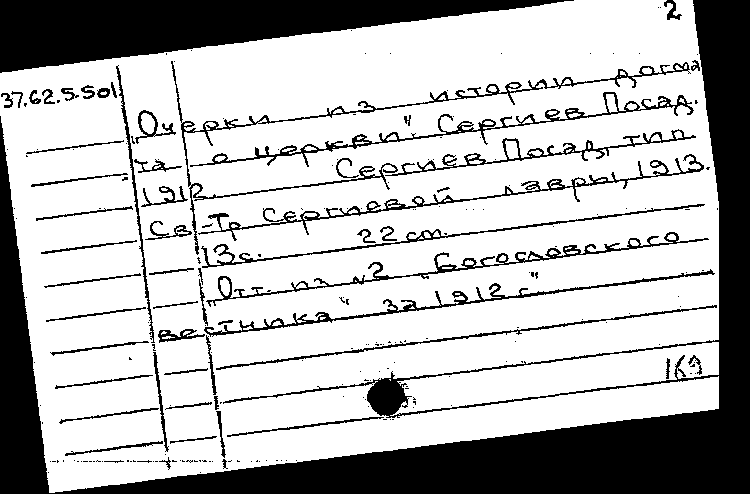 2
37.62.5.Sol.
"Очерки из истории догма
та о церкви". Сергиев Посад.
1912. Сергиев Посад, тип.
Св.-Тр. Сергиевой лавры, 1913.
13 с. 22 см.
"Отт. из №2 "Богословского
вестника" за 1912 г."
169